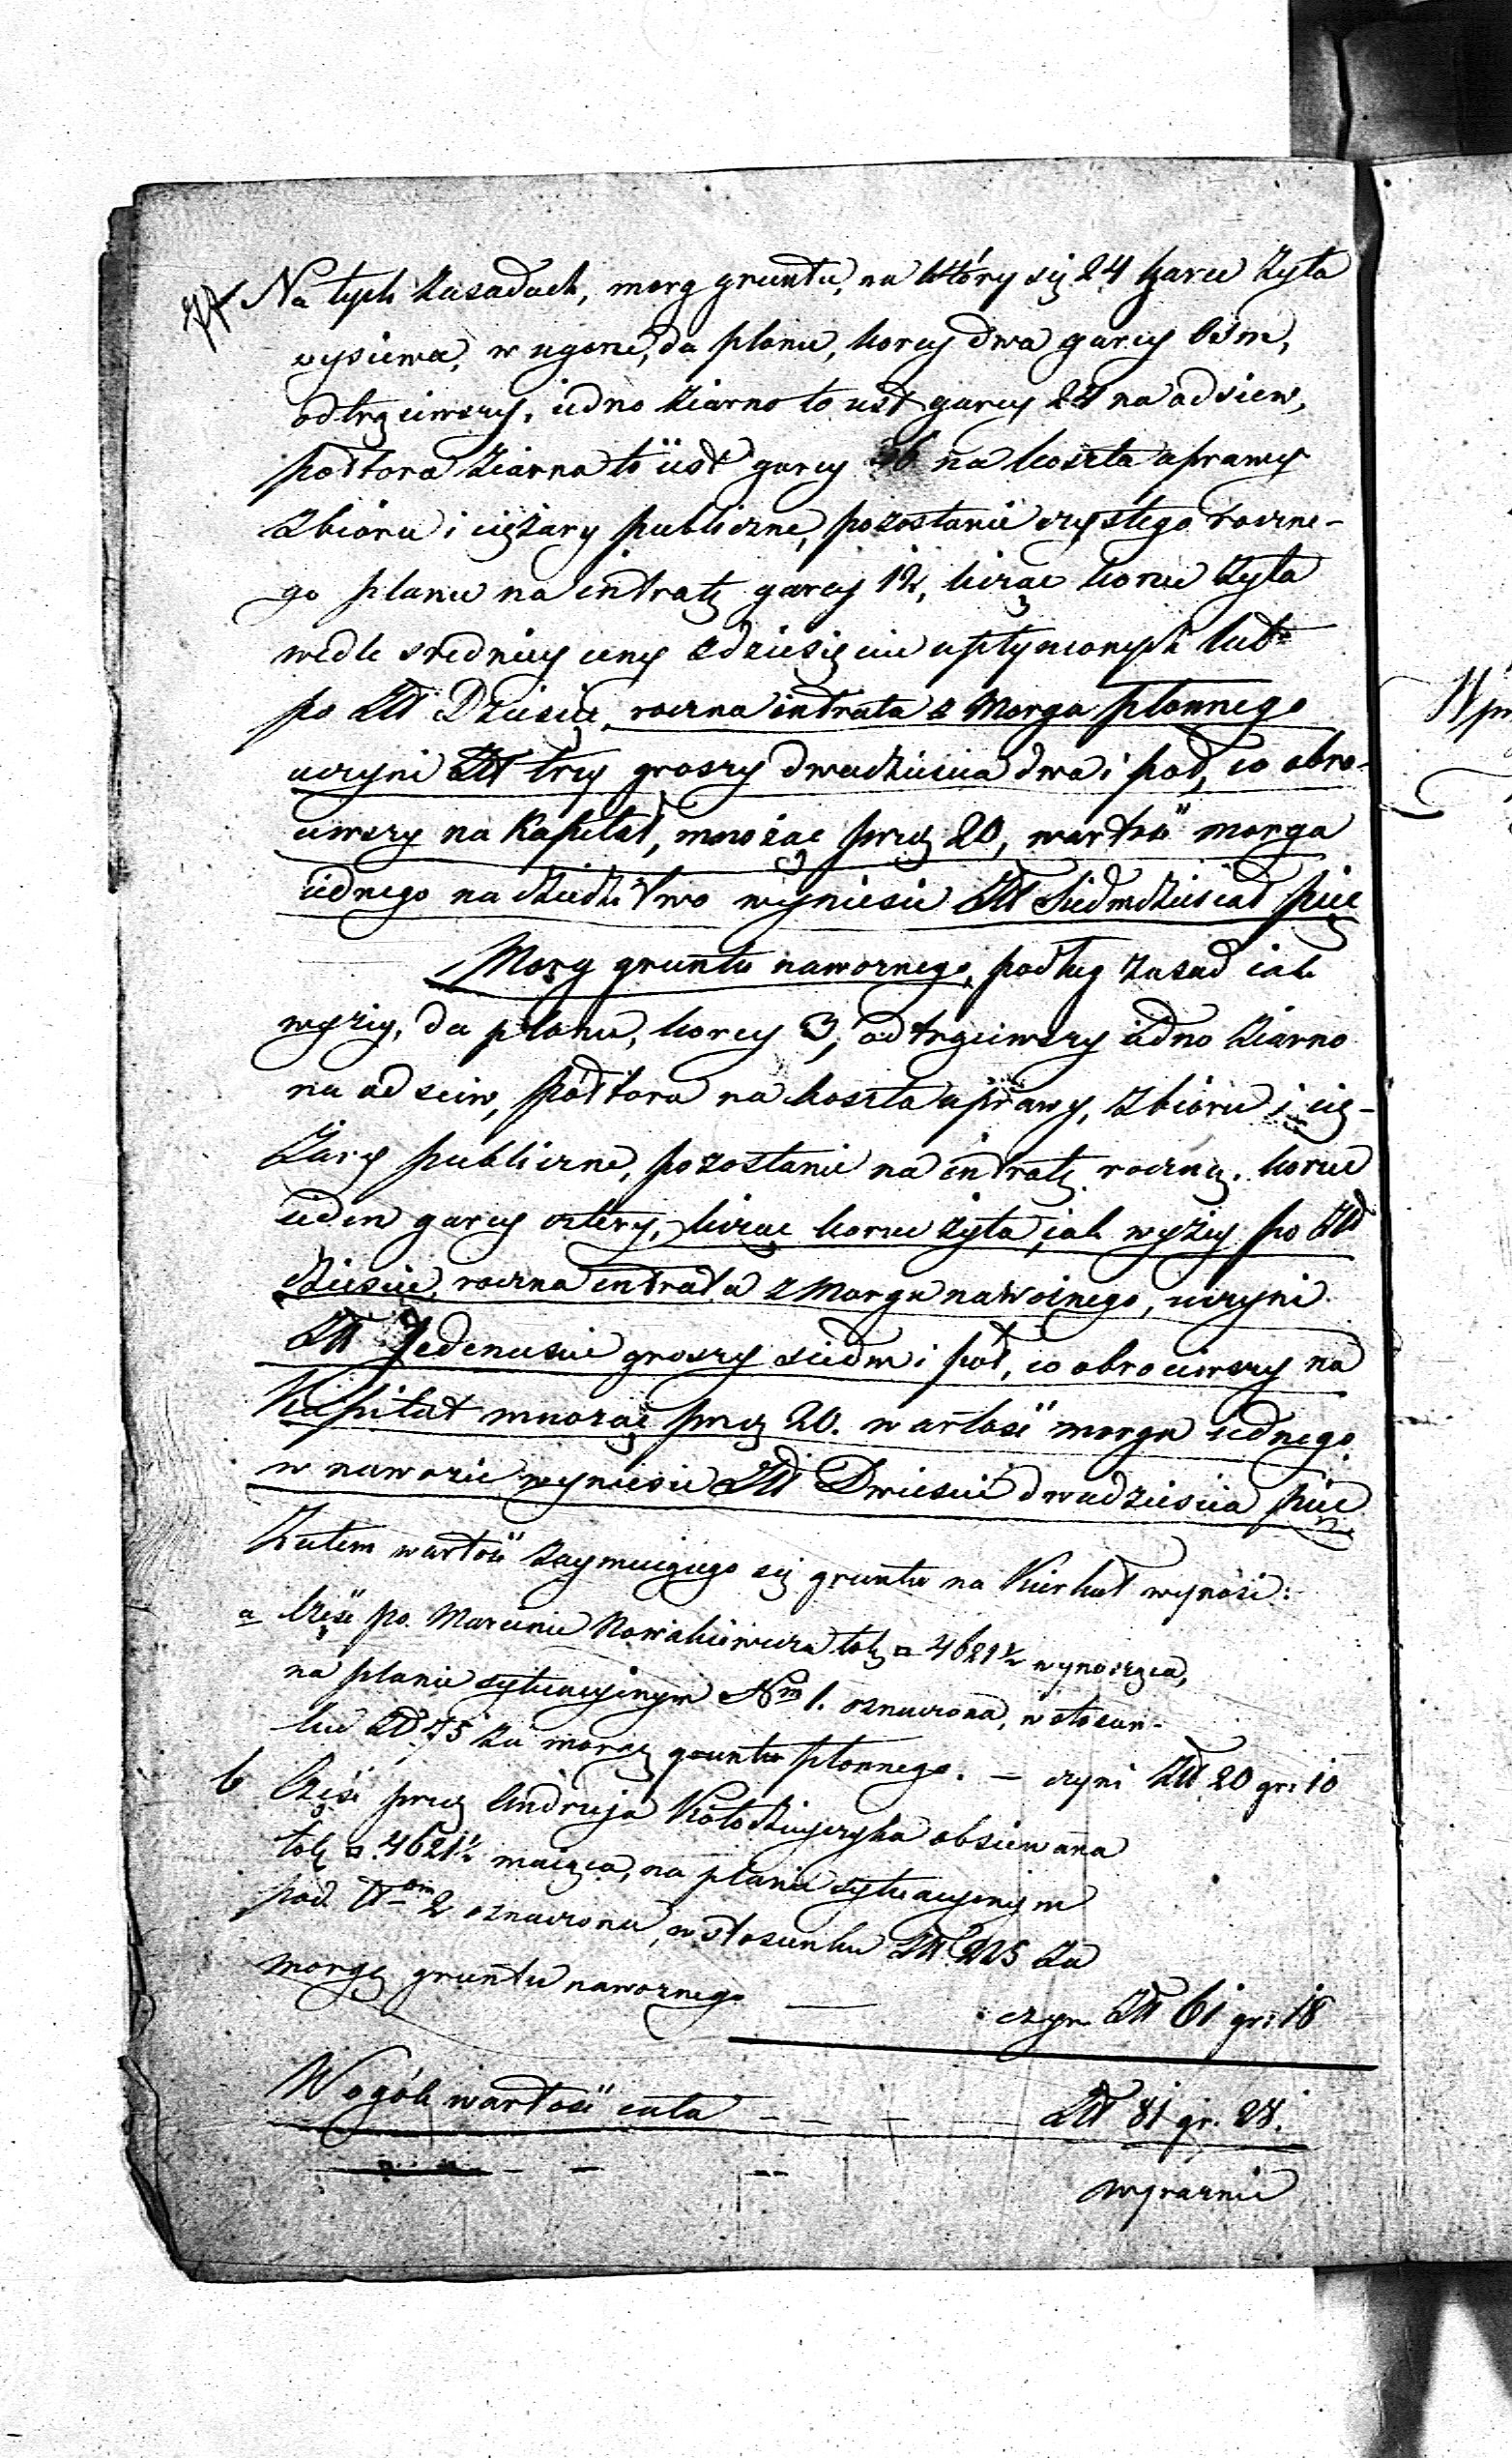 Na tych zasadach, morg gruntu, na który się 24 garce żyta
wysiewa, w ugorze, da plonu, korcy dwa garcy ośm,
odtrąciwszy, iedno ziarno to iest garcy 24 na odsiew,
półtora ziarna to iest garcy 36 na koszta uprawy
zbioru i ciężary publiczne, pozostanie czystego roczne-
go plonu na intratę garcy 12, licząc korzec żyta
wedle średniey ceny z dziesięciu upłynionych lat
po Złł Dziesięć, roczna intrata z Morga płonnego
uczyni Złł trzy groszy dwadzieścia dwa i pół, co obró-
ciwszy na Kapitał, mnożąc przez 20, wartość morga
iednego na dziedzictwo wyniesie Złł Siedmdziesiąt pięć
Morg gruntu nawoznego, podług zasad iak
wyżey, da plonu, korcy 3, odtrąciwszy iedno ziarno
na odsiew, półtora na koszta uprawy, zbioru i cię-
żary publiczne, pozostanie na intratę roczną korzec
ieden garcy cztery, licząc korzec żyta, iak wyżey po Złł
dziesięć, roczna intrata z Morgu nawoznego, uczyni
Złł Jedenaście groszy siedm i pół, co obrociwszy na
Kapitał mnożąc przez 20. wartość morga iednego
w nawozie wyniesie Złł Dwieście dwadzieścia pięć
Zatem wartość zaymuiącego się gruntu na Kierkut wynosi:
a Część po Marcinie Nowakiewiczu łok □ 4621½ wynosząca,
na planie sytuacyinym Nrm 1. oznaczona, w stosun-
ku Złł 75 za morgę gruntu płonnego. — czyni Złł 20 gr: 10
b Część przez Andrzeja Kołodzieyczyka obsiewana
łok □ 4621½ maiąca, na planie sytuacyinym
pod Nrom 2 oznaczona, w stosunku Złł 225 za
morgę gruntu nawoznego — czyn Złł 61 gr: 18
W ogóle wartość cała - - - - Złł 81 gr. 28.
wyraznie